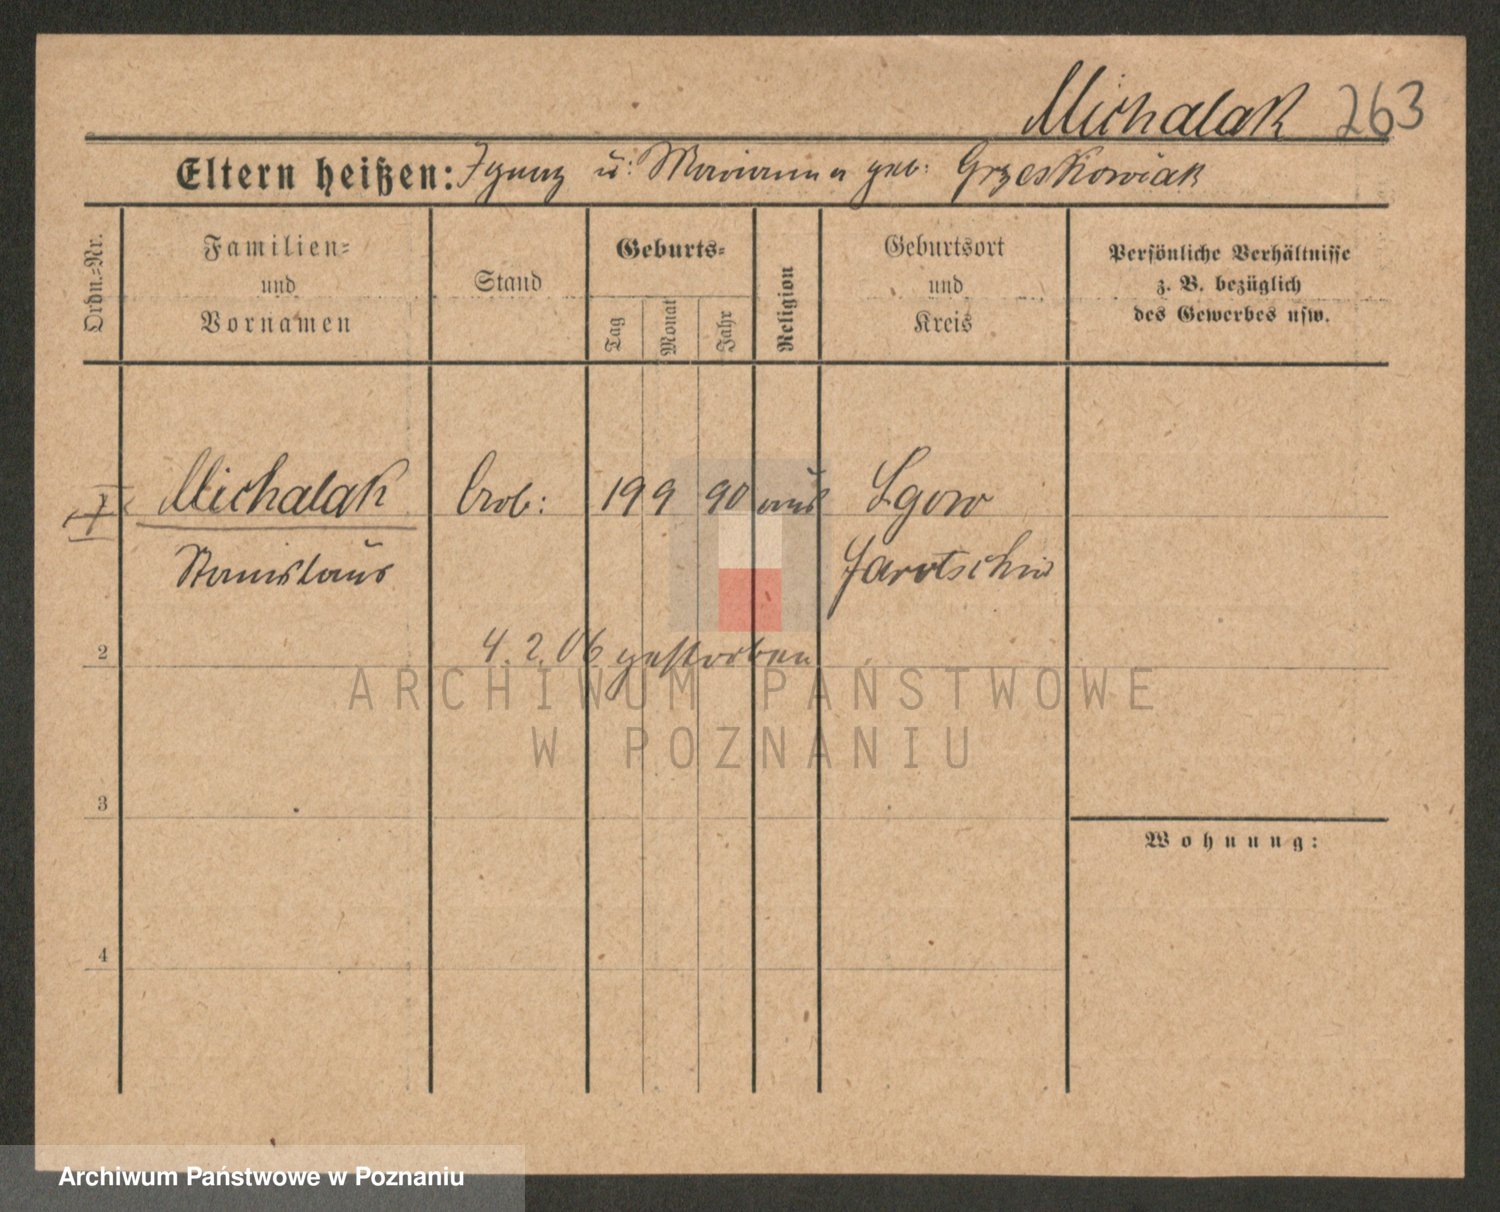 Michalak 263
Eltern heißen: Ignaz u: Marianna geb: Grzeskowiak
Ordn.-Nr.
Familien-
und
Vornamen
Stand
Geburts-
Tag
Monat
Jahr
Religion
Geburtsort
und
Kreis
Persönliche Verhältnisse
z. B. bezüglich
des Gewerbes usw.
Michalak
19 9 90
Lgow
Stanislaus
Jarotschin
2
4. 2. 06 gestorben
ARCHIWUM PAŃSTWOWE
W POZNANIU
3
Wohnung:
4
Archiwum Państwowe w Poznaniu